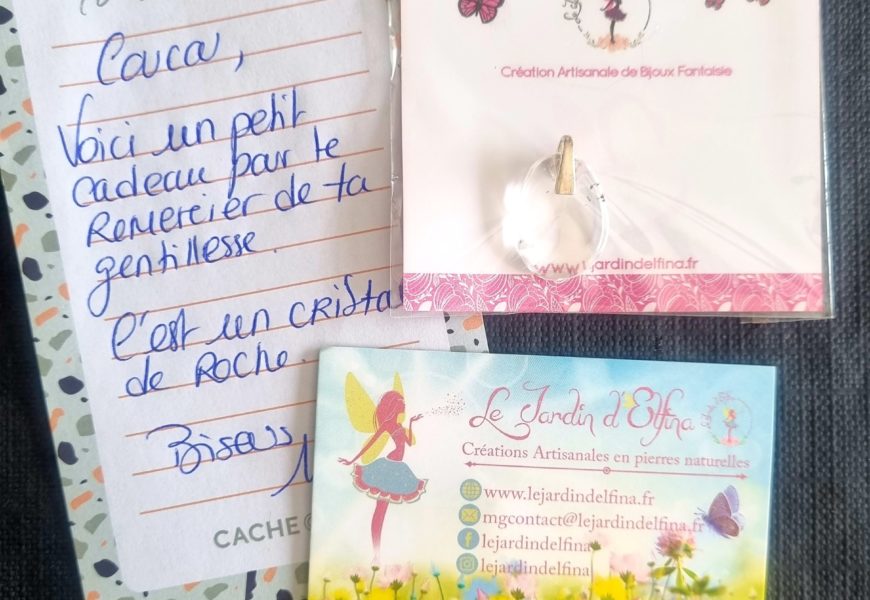 Coucou,
Voici un petit
cadeau par te
Remercier de ta
gentillesse.
C'est un cristal
de Roche.
Bisous
CACHE
Création Artisanale de Bijoux Fantaisie
www.lejardindelfina.fr
Le Jardin d'Elfina
Créations Artisanales en pierres naturelles
www.lejardindelfina.fr
mgcontact@lejardindelfina.fr
lejardindelfina
lejardindelfina